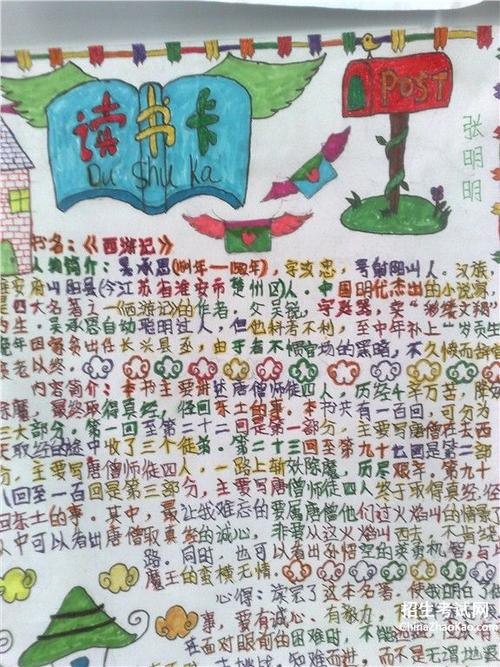 读书卡
Du Shu Ka
POST
张明明
书名：《西游记》
人物简介：吴承恩(1501年—1582年)，字汝忠，号射阳山人。汉族，
淮安府山阳县(今江苏省淮安市楚州区)人。中国明代杰出的小说家，
是四大名著之一《西游记》的作者。父吴锐，字廷器，卖“彩缕文
为生。吴承恩自幼聪明过人，但他科考不利，至中年补上“岁贡生
晚年因家贫出任长兴县丞，由于看不惯官场的黑暗，不久愤而辞
终老以终。
内容简介：本书主要讲述唐僧师徒四人，历经千辛万苦，降
妖除魔，最终取得真经，径回东土的事。本书共有一百回，可分为
三大部分。第一回至第二十二回是第一部分，主要写唐僧在去西
天取经的途中收了三个徒弟。第二十三回至第九十七回是第二部
分，主要写唐僧师徒四人，一路上斩妖除魔，历尽艰辛。第九十
八回至一百回是第三部分，主要写唐僧师徒四人终于取得真经，径
回东土的事。其中，最让我难忘的要属唐僧他们过火焰山的情景
从中可以看出唐僧取真经的诚心，非要从这火焰山西去，不肯绕
路。同时，也可以看出孙悟空的英勇机智，与
魔王的蛮横无情。
心得：读完了这本名著，使我明白了做
事，要有诚心，有毅力，
在面对眼前的困难时，不能
知难而进，而不是无谓地
招生考试网
ChinaZhaoKao.com